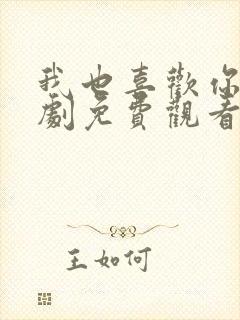 我也喜歡你
劇免費觀看
王如何